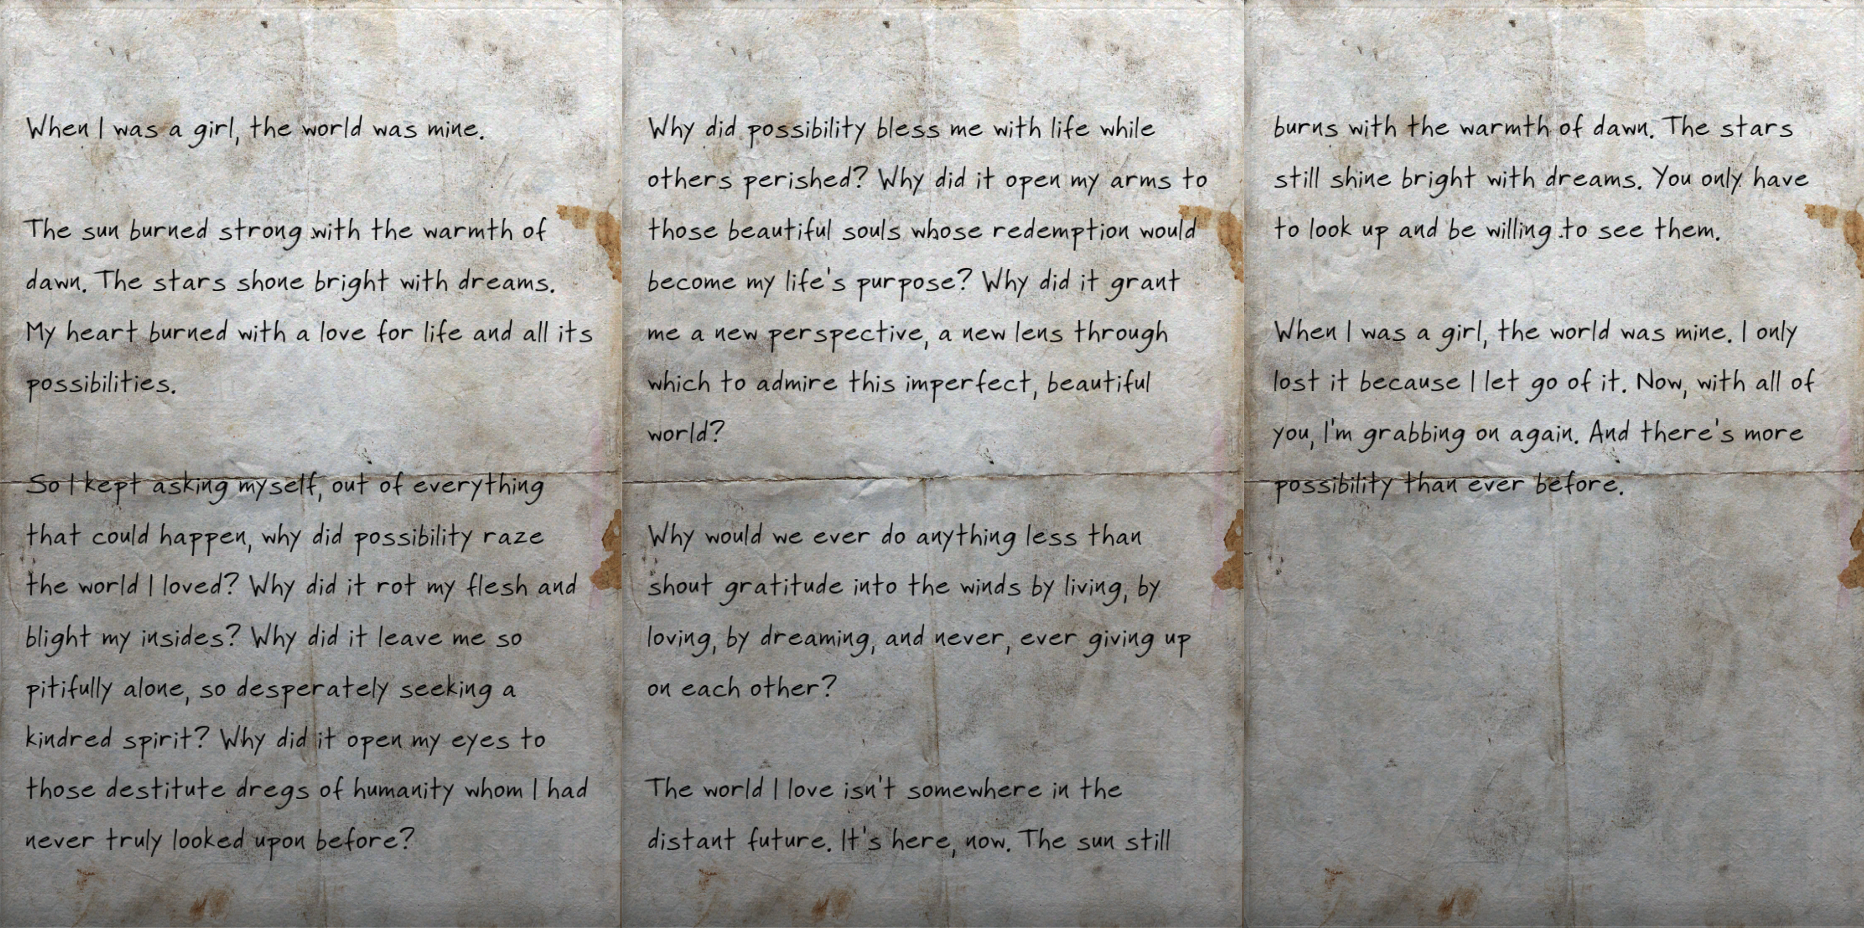 When I was a girl, the world was mine.
The sun burned strong with the warmth of
dawn. The stars shone bright with dreams.
My heart burned with a love for life and all its
possibilities.
So I kept asking myself, out of everything
that could happen, why did possibility raze
the world I loved? Why did it rot my flesh and
blight my insides? Why did it leave me so
pitifully alone, so desperately seeking a
kindred spirit? Why did it open my eyes to
those destitute dregs of humanity whom I had
never truly looked upon before?
Why did possibility bless me with life while
others perished? Why did it open my arms to
those beautiful souls whose redemption would
become my life's purpose? Why did it grant
me a new perspective, a new lens through
which to admire this imperfect, beautiful
world?
Why would we ever do anything less than
shout gratitude into the winds by living, by
loving, by dreaming, and never, ever giving up
on each other?
The world I love isn't somewhere in the
distant future. It's here, now. The sun still
burns with the warmth of dawn. The stars
still shine bright with dreams. You only have
to look up and be willing to see them.
When I was a girl, the world was mine. I only
lost it because I let go of it. Now, with all of
you, I'm grabbing on again. And there's more
possibility than ever before.